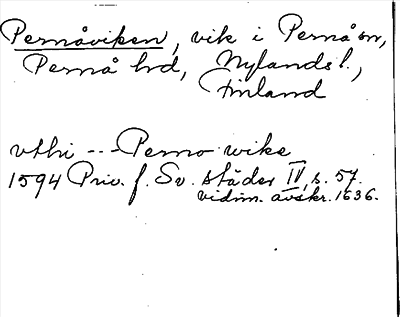 Pernåviken, vik i Pernå sn,
Pernå hd, Nylands l.,
Finland
vthi --- Perno wike
1594 Priv. f. Sv. städer IV, s. 57.
vidim. avskr. 1636.